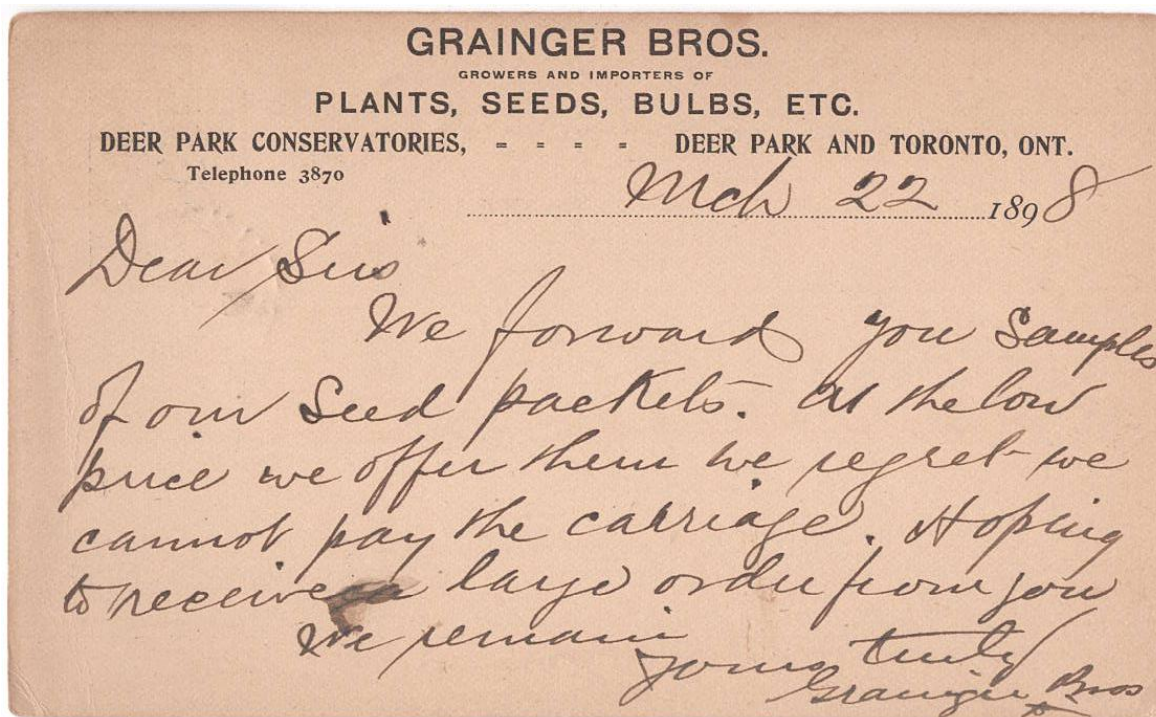 GRAINGER BROS.
GROWERS AND IMPORTERS OF
PLANTS, SEEDS, BULBS, ETC.
DEER PARK CONSERVATORIES, = = = = DEER PARK AND TORONTO, ONT.
Telephone 3870
Mch 22 1898
Dear Sirs
We forward you Samples
of our Seed packets. At the low
price we offer them we regret we
cannot pay the carriage. Hoping
to receive a large order from you
We remain
Yours truly
Grainger Bros